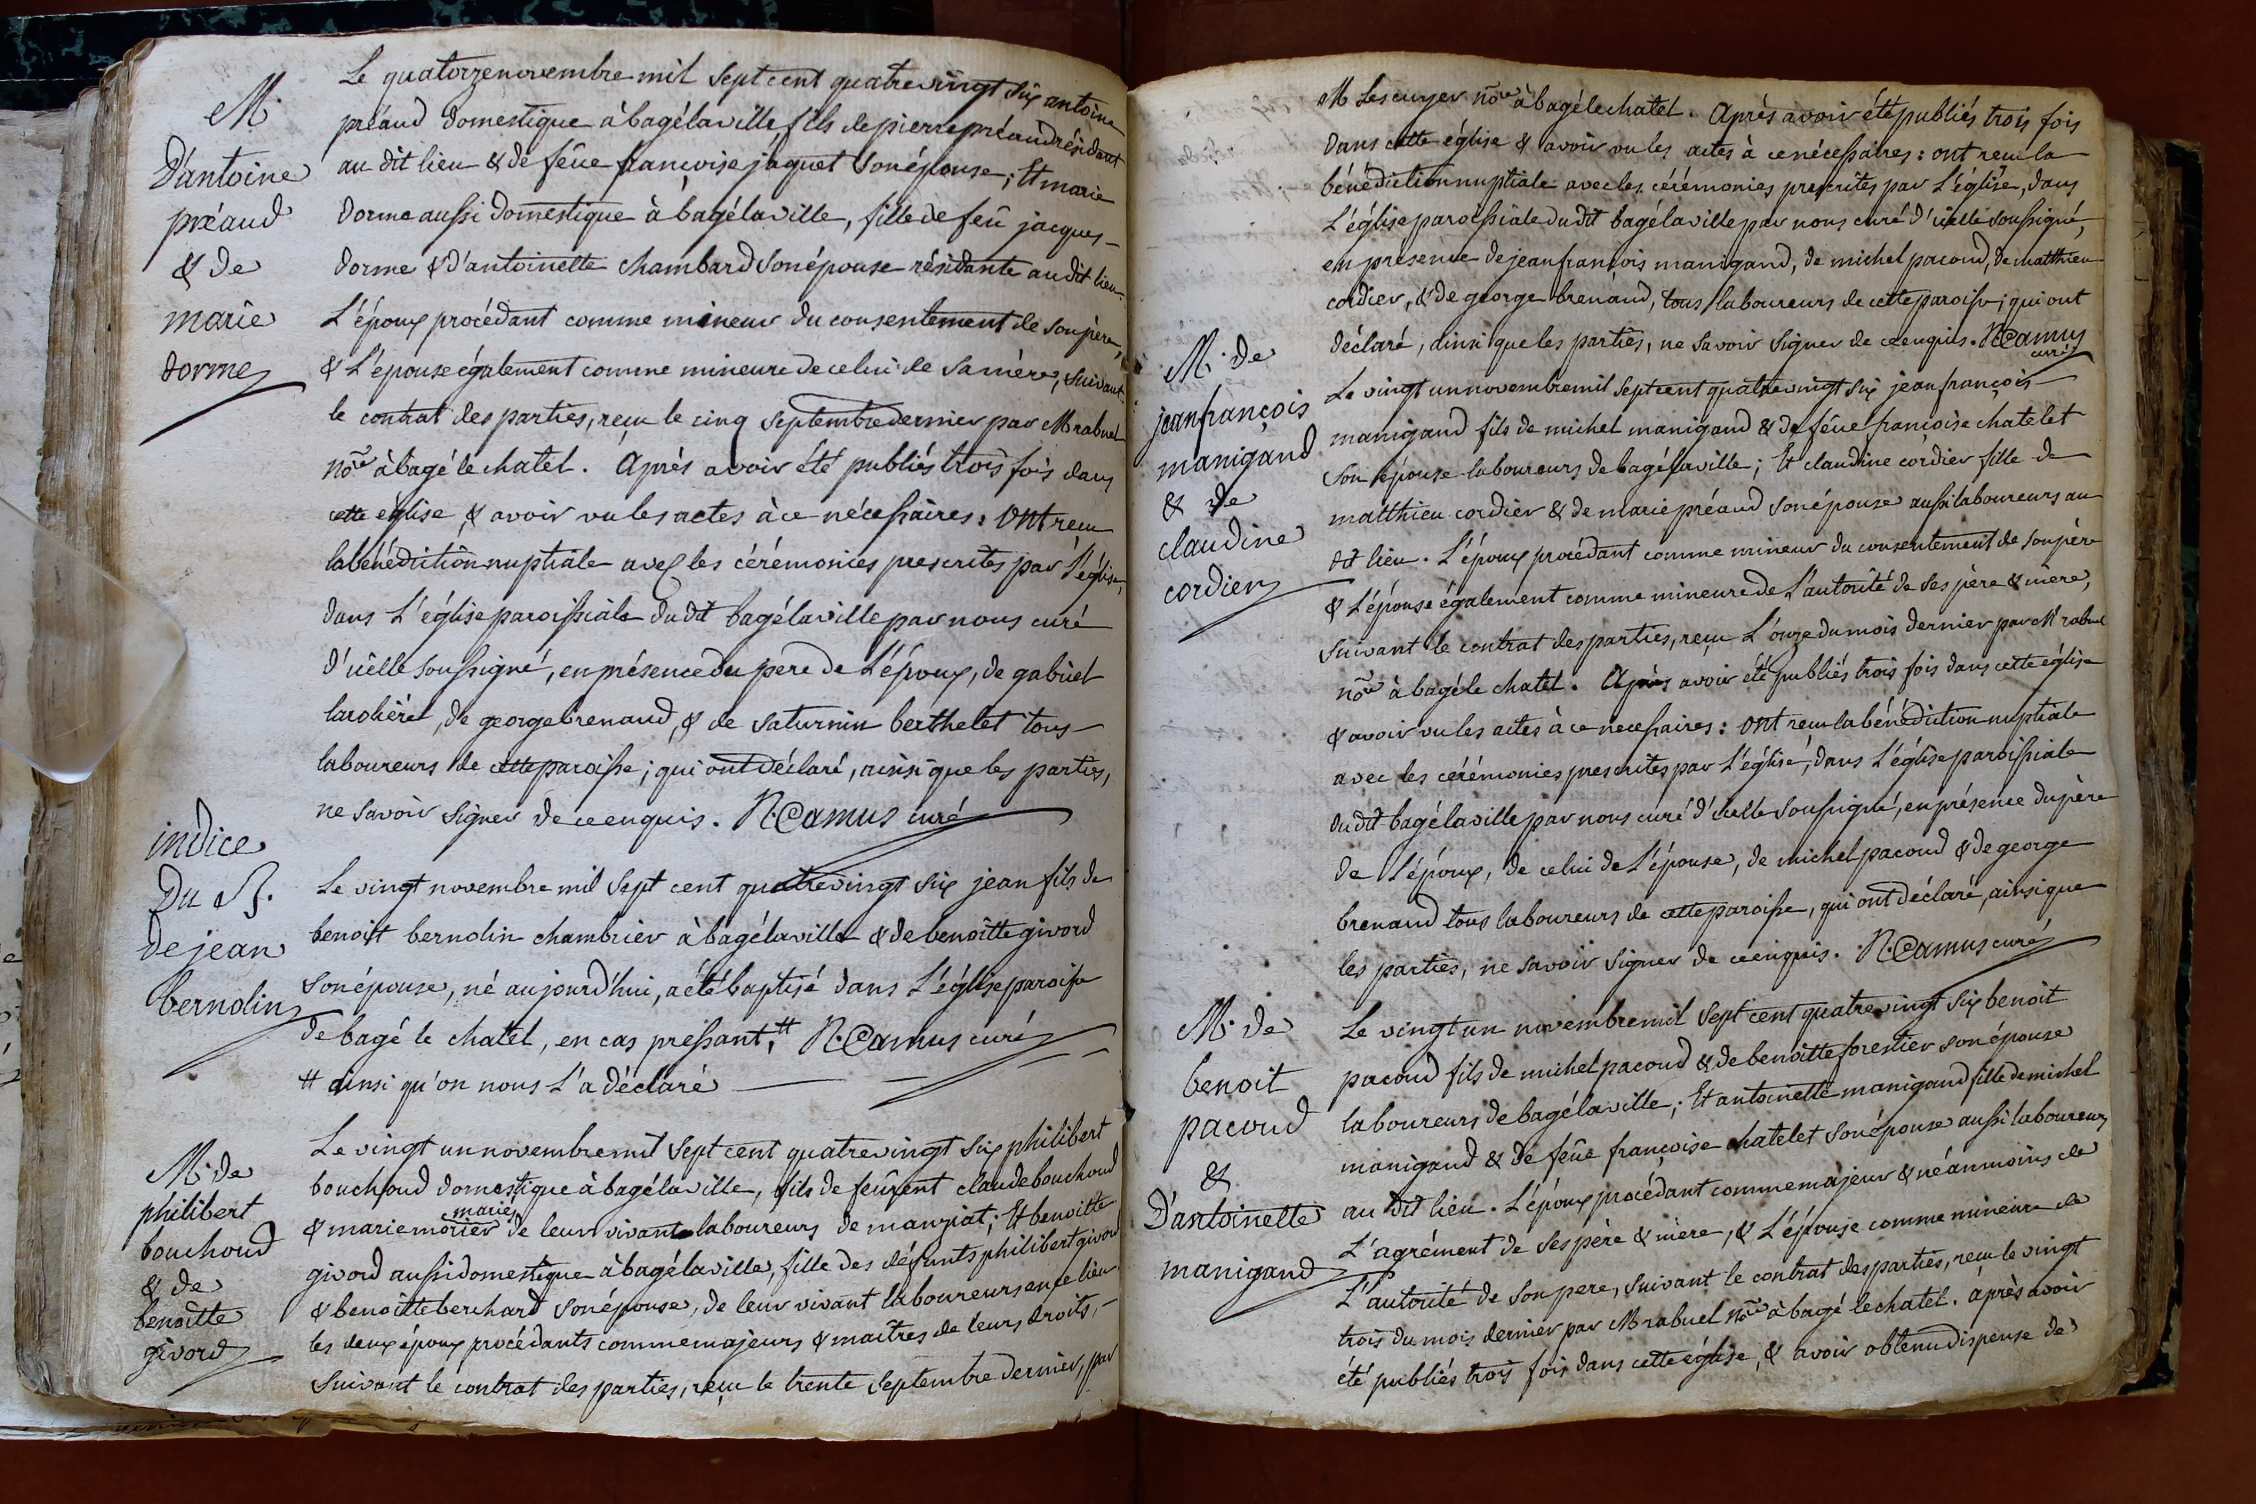 M.
D'antoine
préaud
& de
marie
dorme
Le quatorze novembre mil sept cent quatre vingt six antoine
préaud domestique à bagélaville fils de pierre préaud résidant
au dit lieu & de feüe françoise jaquet son épouse ; Et marie
dorme aussi domestique à bagélaville, fille de feû jacques
dorme & d'antoinette chambard son épouse résidante au dit lieu.
L'époux procédant comme mineur du consentement de son père,
& L'épouse également comme mineure de celui de sa mère, suivant
le contrat des parties, reçu le cinq septembre dernier par M rabuel
nôre à bagé le chatel. Après avoir été publiés trois fois dans
cette église & avoir vu les actes à ce nécessaires : ont reçu
la bénédiction nuptiale avec les cérémonies prescrites par l'église,
dans L'église paroissiale dudit bagélaville par nous curé
d'icelle soussigné, en présence du père de L'époux, de gabriel
larolière, de george brenaud, & de saturnin berthelet tous
laboureurs de cette paroisse ; qui ont déclaré, ainsi que les parties,
ne savoir signer de ce enquis. N. Camus curé
indice
Du B.
de jean
bernolin
Le vingt novembre mil sept cent quatre vingt six jean fils de
benoit bernolin chambrier à bagélaville & de benoitte givord
son épouse, né aujourd'hui, a été baptisé dans L'église paroisse
de bagé le chatel, en cas pressant, # N. Camus curé
# ainsi qu'on nous L'a déclaré
M. de
philibert
bouchoud
& de
benoitte
givord
Le vingt un novembre mil sept cent quatre vingt six philibert
bouchoud domestique à bagélaville, fils de feurent claude bouchoud
marie
& marie morier de leur vivant laboureurs de manziat ; Et benoitte
givord aussi domestique à bagélaville, fille des défunts philibert givord
& benoitte berchard son épouse, de leur vivant laboureurs en ce lieu
les deux époux procédants comme majeurs & maîtres de leurs droits,
suivant le contrat des parties, reçu le trente septembre dernier, par
M Lescuyer nôre à bagé le chatel. Après avoir été publiés trois fois
dans cette église & avoir vu les actes à ce nécessaires : ont reçu la
bénédiction nuptiale avec les cérémonies prescrites par L'église, dans
L'église paroissiale dudit bagélaville par nous curé d'icelle soussigné,
en présence de jean françois manigand, de michel pacoud, de matthieu
cordier, & de george brenaud, tous laboureurs de cette paroisse ; qui ont
déclaré, ainsi que les parties, ne savoir signer de ce enquis. N. Camus
curé
M. de
jean françois
manigand
& de
claudine
cordier
Le vingt un novembre mil sept cent quatre vingt six jean françois
manigand fils de michel manigand & de feüe françoise chatelet
son épouse laboureurs de bagélaville ; Et claudine cordier fille de
matthieu cordier & de marie préaud son épouse aussi laboureurs au
dit lieu. L'époux procédant comme mineur du consentement de son père
& L'épouse également comme mineure de L'autorité de ses père & mère,
suivant le contrat des parties, reçu L'onze du mois dernier par M rabuel
nôre à bagé le chatel. Après avoir été publiés trois fois dans cette église
& avoir vu les actes à ce necessaires : ont reçu la bénédiction nuptiale
avec les cérémonies prescrites par L'église, dans L'église paroissiale
dudit bagélaville par nous curé d'icelle soussigné, en présence du père
de L'époux, de celui de L'épouse, de michel pacoud & de george
brenaud tous laboureurs de cette paroisse, qui ont déclaré, ainsi que
les parties, ne savoir signer de ce enquis. N. Camus curé
M. de
benoit
pacoud
&
D'antoinette
manigand
Le vingt un novembre mil sept cent quatre vingt six benoit
pacoud fils de michel pacoud & de benoitte forestier son épouse
laboureurs de bagélaville ; Et antoinette manigand fille de michel
manigand & de feüe françoise chatelet son épouse aussi laboureurs
au dit lieu. L'époux procédant comme majeur & néanmoins de
L'agrément de ses père & mère, & L'épouse comme mineure de
L'autorité de son pere, suivant le contrat des parties, reçu le vingt
trois du mois dernier par M rabuel nôre à bagé le chatel. après avoir
été publiés trois fois dans cette église, & avoir obtenu dispense de